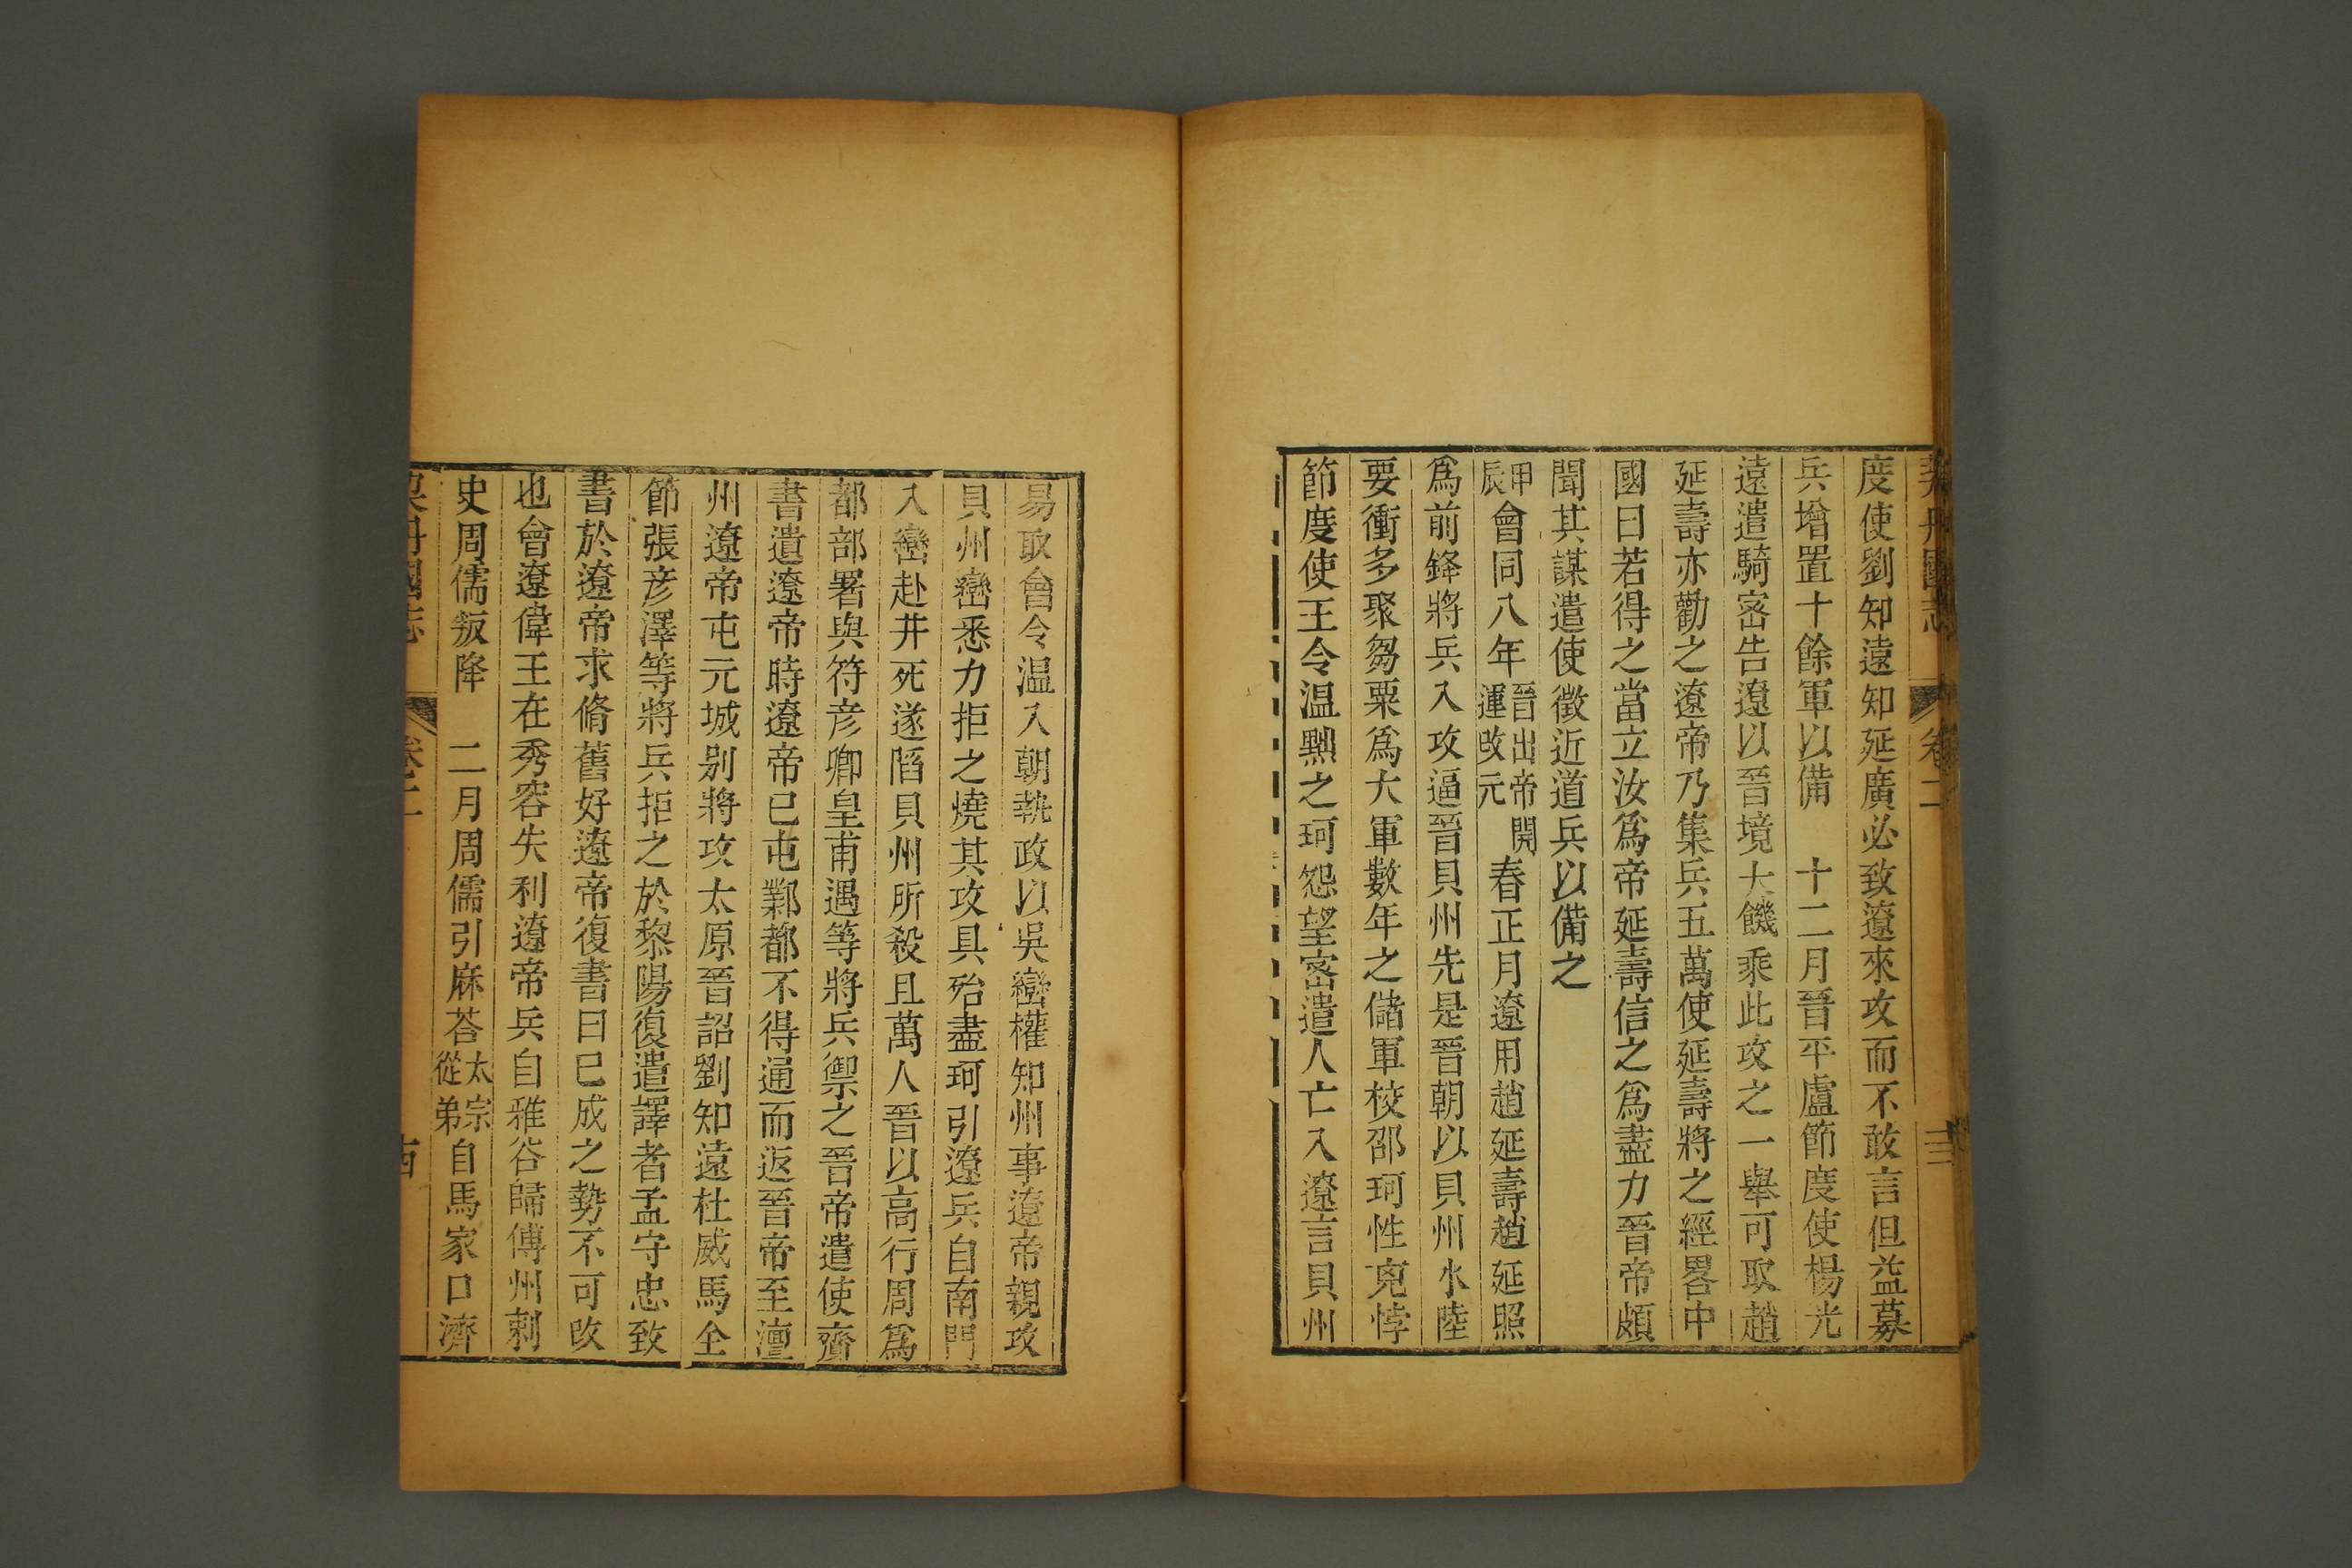 契丹國志 卷二 十三
度使劉知遠知延廣必致遼來攻而不敢言但益募
兵增置十餘軍以備 十二月晉平盧節度使楊光
遠遣騎密告遼以晉境大饑乘此攻之一舉可取趙
延壽亦勸之遼帝乃集兵五萬使延壽將之經畧中
國曰若得之當立汝爲帝延壽信之爲盡力晉帝頗
聞其謀遣使徵近道兵以備之
甲辰會同八年晉出帝開運改元春正月遼用趙延壽趙延照
爲前鋒將兵入攻逼晉貝州先是晉朝以貝州水陸
要衝多聚芻粟爲大軍數年之儲軍校邵珂性兇悖
節度使王令温黜之珂怨望密遣人亡入遼言貝州
易取會令温入朝執政以吳巒權知州事遼帝親攻
貝州巒悉力拒之燒其攻具殆盡珂引遼兵自南門
入巒赴井死遂陷貝州所殺且萬人晉以高行周爲
都部署與符彦卿皇甫遇等將兵禦之晉帝遣使齎
書遺遼帝時遼帝已屯鄴都不得通而返晉帝至澶
州遼帝屯元城别將攻太原晉詔劉知遠杜威馬全
節張彦澤等將兵拒之於黎陽復遣譯者孟守忠致
書於遼帝求脩舊好遼帝復書曰已成之勢不可改
也會遼偉王在秀容失利遼帝兵自雅谷歸傅州刺
史周儒叛降 二月周儒引麻荅太宗從弟自馬家口濟
契丹國志 卷二